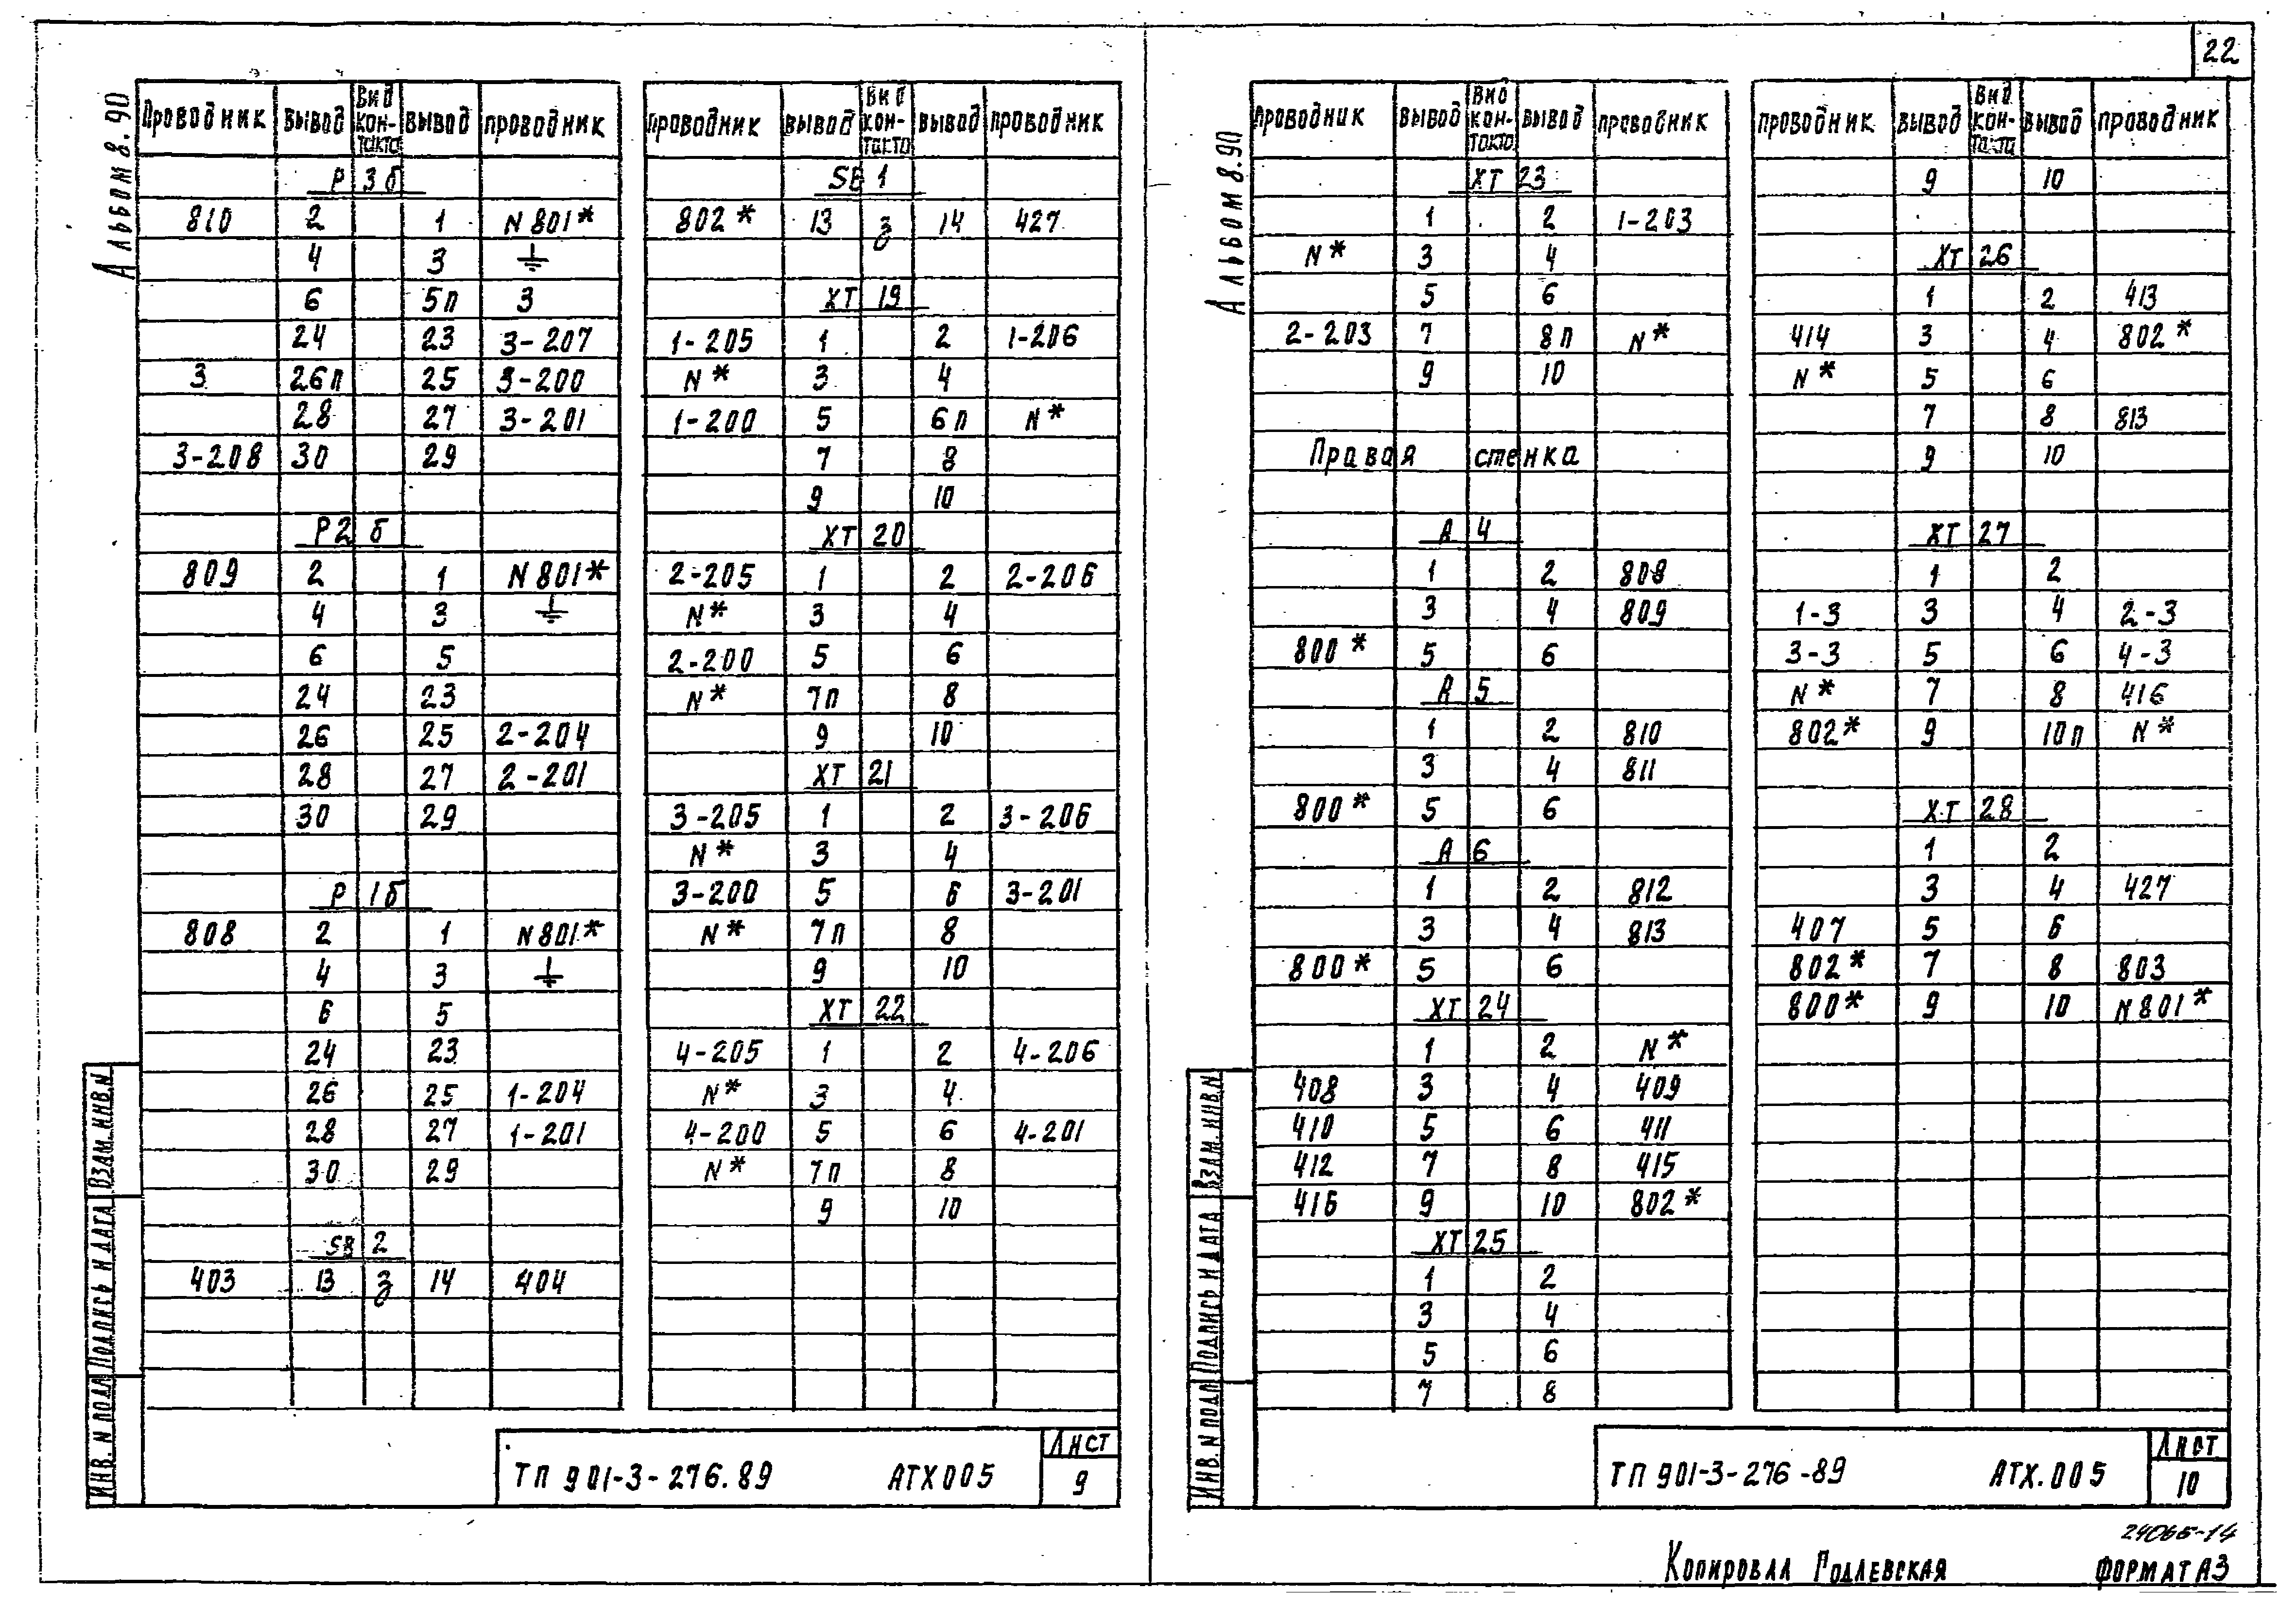 22
Альбом 8.90
Проводник вывод Вид кон-такта вывод проводник
Р3б
810 2 1 N801*
4 3 ⏚
6 5п 3
24 23 3-207
3 26п 25 3-200
28 27 3-201
3-208 30 29
Р2б
809 2 1 N801*
4 3 ⏚
6 5
24 23
26 25 2-204
28 27 2-201
30 29
Р1б
808 2 1 N801*
4 3 ⏚
6 5
24 23
26 25 1-204
28 27 1-201
30 29
SB2
403 13 з 14 404
проводник вывод Вид кон-такта вывод проводник
SB1
802* 13 з 14 427
ХТ19
1-205 1 2 1-206
N* 3 4
1-200 5 6п N*
7 8
9 10
ХТ20
2-205 1 2 2-206
N* 3 4
2-200 5 6
N* 7п 8
9 10
ХТ21
3-205 1 2 3-206
N* 3 4
3-200 5 6 3-201
N* 7п 8
9 10
ХТ22
4-205 1 2 4-206
N* 3 4
4-200 5 6 4-201
N* 7п 8
9 10
Инв. N подл Подпись и дата Взам. инв. N
ТП 901-3-276.89 АТХ005 Лист 9
Альбом 8.90
проводник вывод Вид кон-такта вывод проводник
ХТ23
1 2 1-203
N* 3 4
5 6
2-203 7 8п N*
9 10
Правая стенка
А4
1 2 808
3 4 809
800* 5 6
А5
1 2 810
3 4 811
800* 5 6
А6
1 2 812
3 4 813
800* 5 6
ХТ24
1 2 N*
408 3 4 409
410 5 6 411
412 7 8 415
416 9 10 802*
ХТ25
1 2
3 4
5 6
7 8
проводник вывод Вид кон-такта вывод проводник
9 10
ХТ26
1 2 413
414 3 4 802*
N* 5 6
7 8 813
9 10
ХТ27
1 2
1-3 3 4 2-3
3-3 5 6 4-3
N* 7 8 416
802* 9 10п N*
ХТ28
1 2
3 4 427
407 5 6
802* 7 8 803
800* 9 10 N801*
Инв. N подл Подпись и дата Взам. инв. N
ТП 901-3-276-89 АТХ.005 Лист 10
24065-14
Копировал Подлевская Формат А3